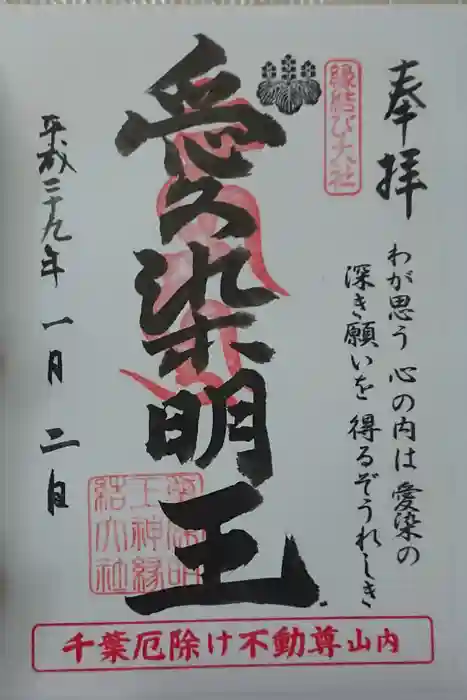 奉拝
縁結び大社
わが思う 心の内は 愛染の
深き願いを 得るぞうれしき
愛染明王
愛染明
王神縁
結大社
平成二十九年 一月 二日
千葉厄除け不動尊山内